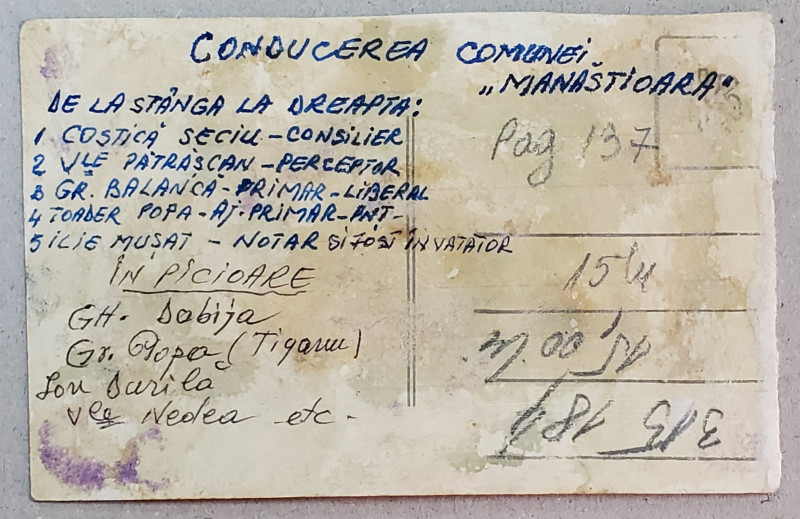 CONDUCEREA COMUNEI
„MANAŞTIOARA"
DE LA STÂNGA LA DREAPTA:
1 COSTICĂ SECIU - CONSILIER
2 VLE PĂTRĂSCAN - PERCEPTOR
3 GR. BALANCĂ - PRIMAR - LIBERAL
4 TOADER POPA - AJ. PRIMAR - PNT -
5 ILIE MUSAT - NOTAR SI FOST ÎNVATATOR
ÎN PICIOARE
GH. Dabija
Gr. Popa (Tiganu)
Ion Durila
Vle Nedea etc -
Pag 137
15 lu
15,00
313